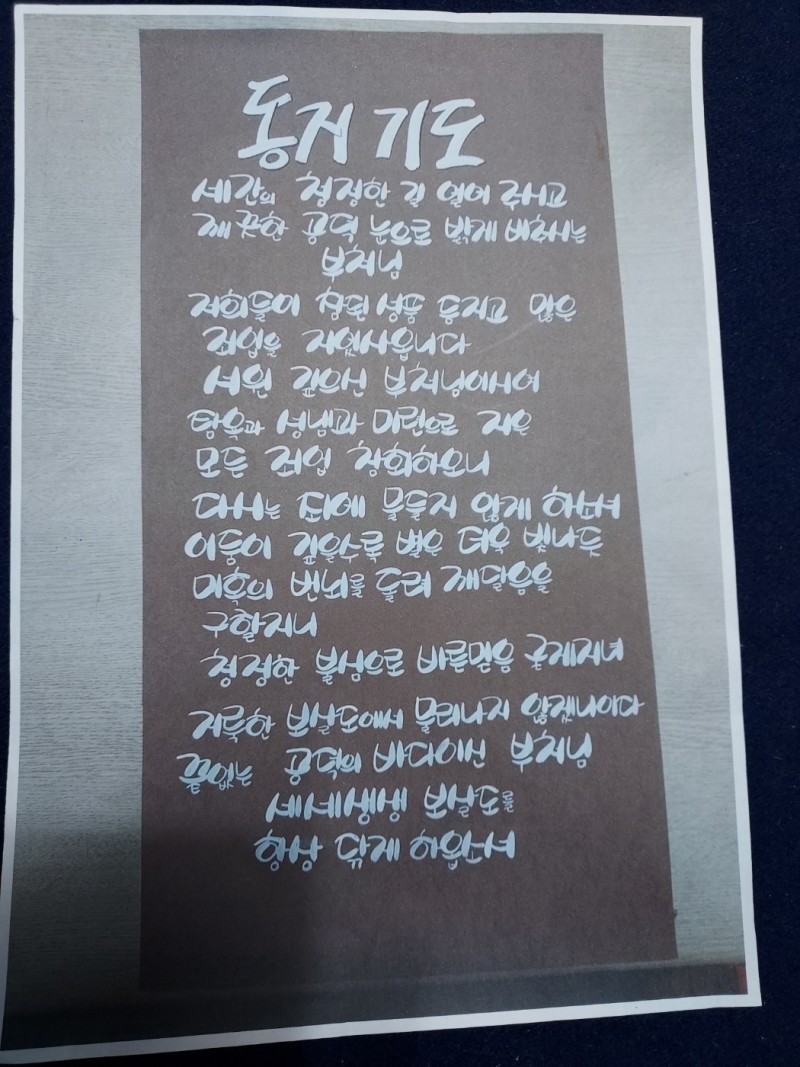 동지 기도
세간의 청정한 길 열어 주시고
깨끗한 공덕 눈으로 밝게 비추시는
부처님
저희들이 참된 성품 등지고 많은
죄업을 지었사옵니다
서원 깊으신 부처님이시여
탐욕과 성냄과 미련으로 지은
모든 죄업 참회하오니
다시는 죄에 물들지 않게 하소서
어둠이 깊을수록 별은 더욱 빛나듯
미혹의 번뇌를 돌려 깨달음을
구할지니
청정한 불심으로 바른믿음 굳게지녀
지륵한 보살도에서 물러나지 않겠나이다
끝없는 공덕의 바다이신 부처님
세세생생 보살도를
항상 닦게 하옵소서